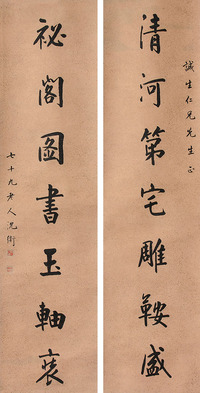 誠生仁兄先生正
清河第宅雕鞍盛
祕閣圖書玉軸裝
七十九老人沈衛